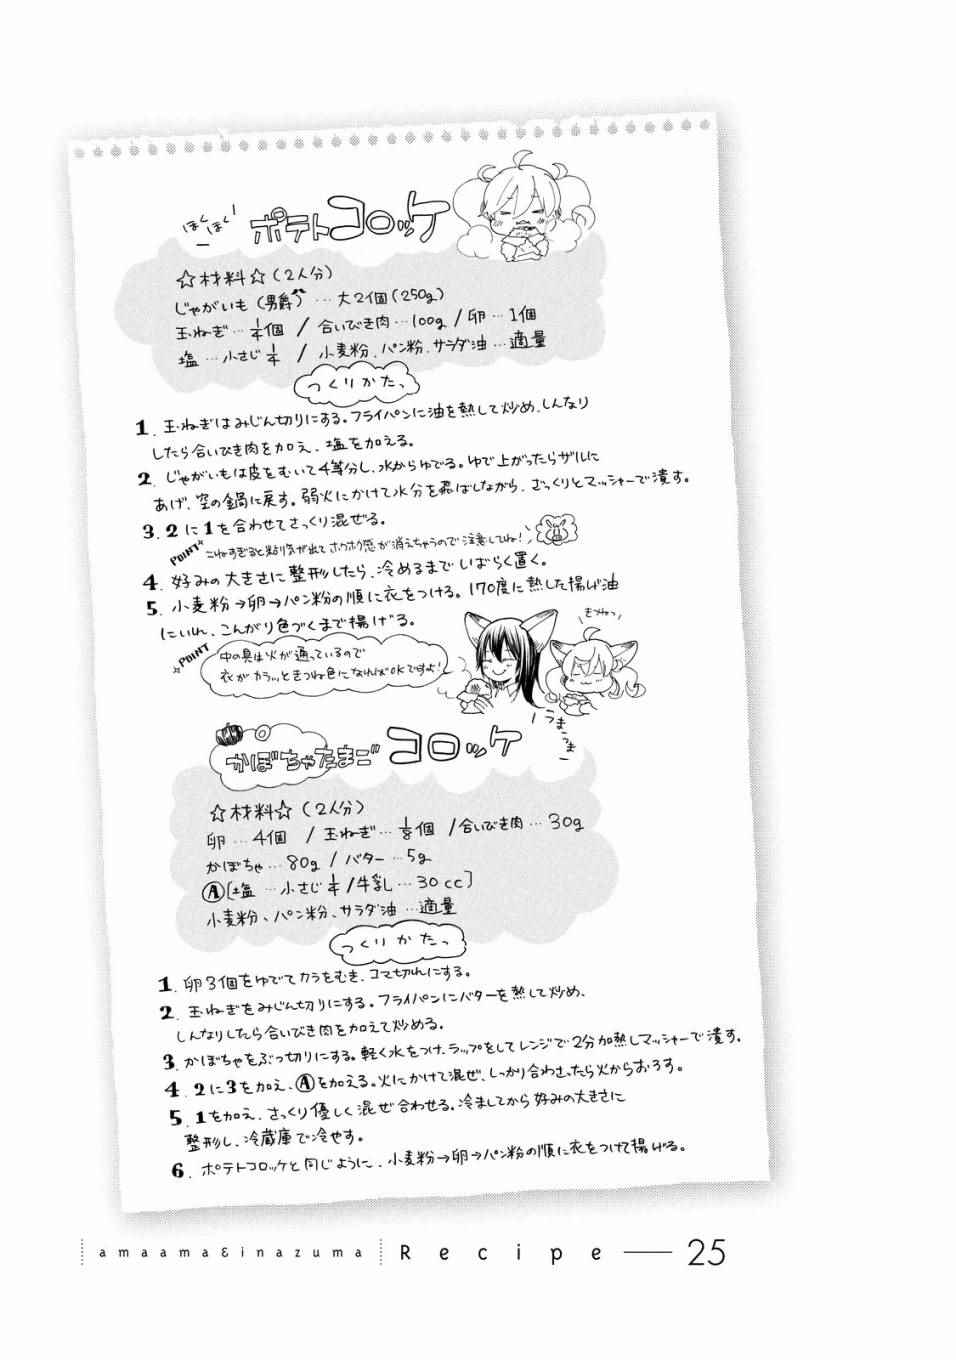 ほくほく!
ポテトコロッケ
☆材料☆(2人分)
じゃがいも(男爵)…大2個(250g)
玉ねぎ…1/4個 / 合いびき肉…100g / 卵…1個
塩…小さじ1/4 / 小麦粉、パン粉、サラダ油…適量
つくりかた、
1. 玉ねぎはみじん切りにする。フライパンに油を熱して炒め、しんなり
したら合いびき肉を加え、塩を加える。
2. じゃがいもは皮をむいて4等分し、水からゆでる。ゆで上がったらザルに
あげ、空の鍋に戻す。弱火にかけて水分を飛ばしながら、ざっくりとマッシャーで潰す。
3. 2に1を合わせてさっくり混ぜる。
POINT こねすぎると粘り気が出てホクホク感が消えちゃうので注意してね!
4. 好みの大きさに整形したら、冷めるまでしばらく置く。
5. 小麦粉→卵→パン粉の順に衣をつける。170度に熱した揚げ油
にいれ、こんがり色づくまで揚げる。
POINT 中の具は火が通っているので
衣がカラッときつね色になればOKですよ!
きつねっ
うまうま
かぼちゃたまごコロッケ
☆材料☆(2人分)
卵…4個 / 玉ねぎ…1/8個 / 合いびき肉…30g
かぼちゃ…80g / バター…5g
Ⓐ[塩…小さじ1/4 / 牛乳…30cc]
小麦粉、パン粉、サラダ油…適量
つくりかたっ
1. 卵3個をゆでてカラをむき、コマ切れにする。
2. 玉ねぎをみじん切りにする。フライパンにバターを熱して炒め、
しんなりしたら合いびき肉を加えて炒める。
3. かぼちゃをぶつ切りにする。軽く水をつけ、ラップをしてレンジで2分加熱しマッシャーで潰す。
4. 2に3を加え、Ⓐを加える。火にかけて混ぜ、しっかり合わさったら火からおろす。
5. 1を加え、さっくり優しく混ぜ合わせる。冷ましてから好みの大きさに
整形し、冷蔵庫で冷やす。
6. ポテトコロッケと同じように、小麦粉→卵→パン粉の順に衣をつけて揚げる。
amaama&inazuma Recipe — 25